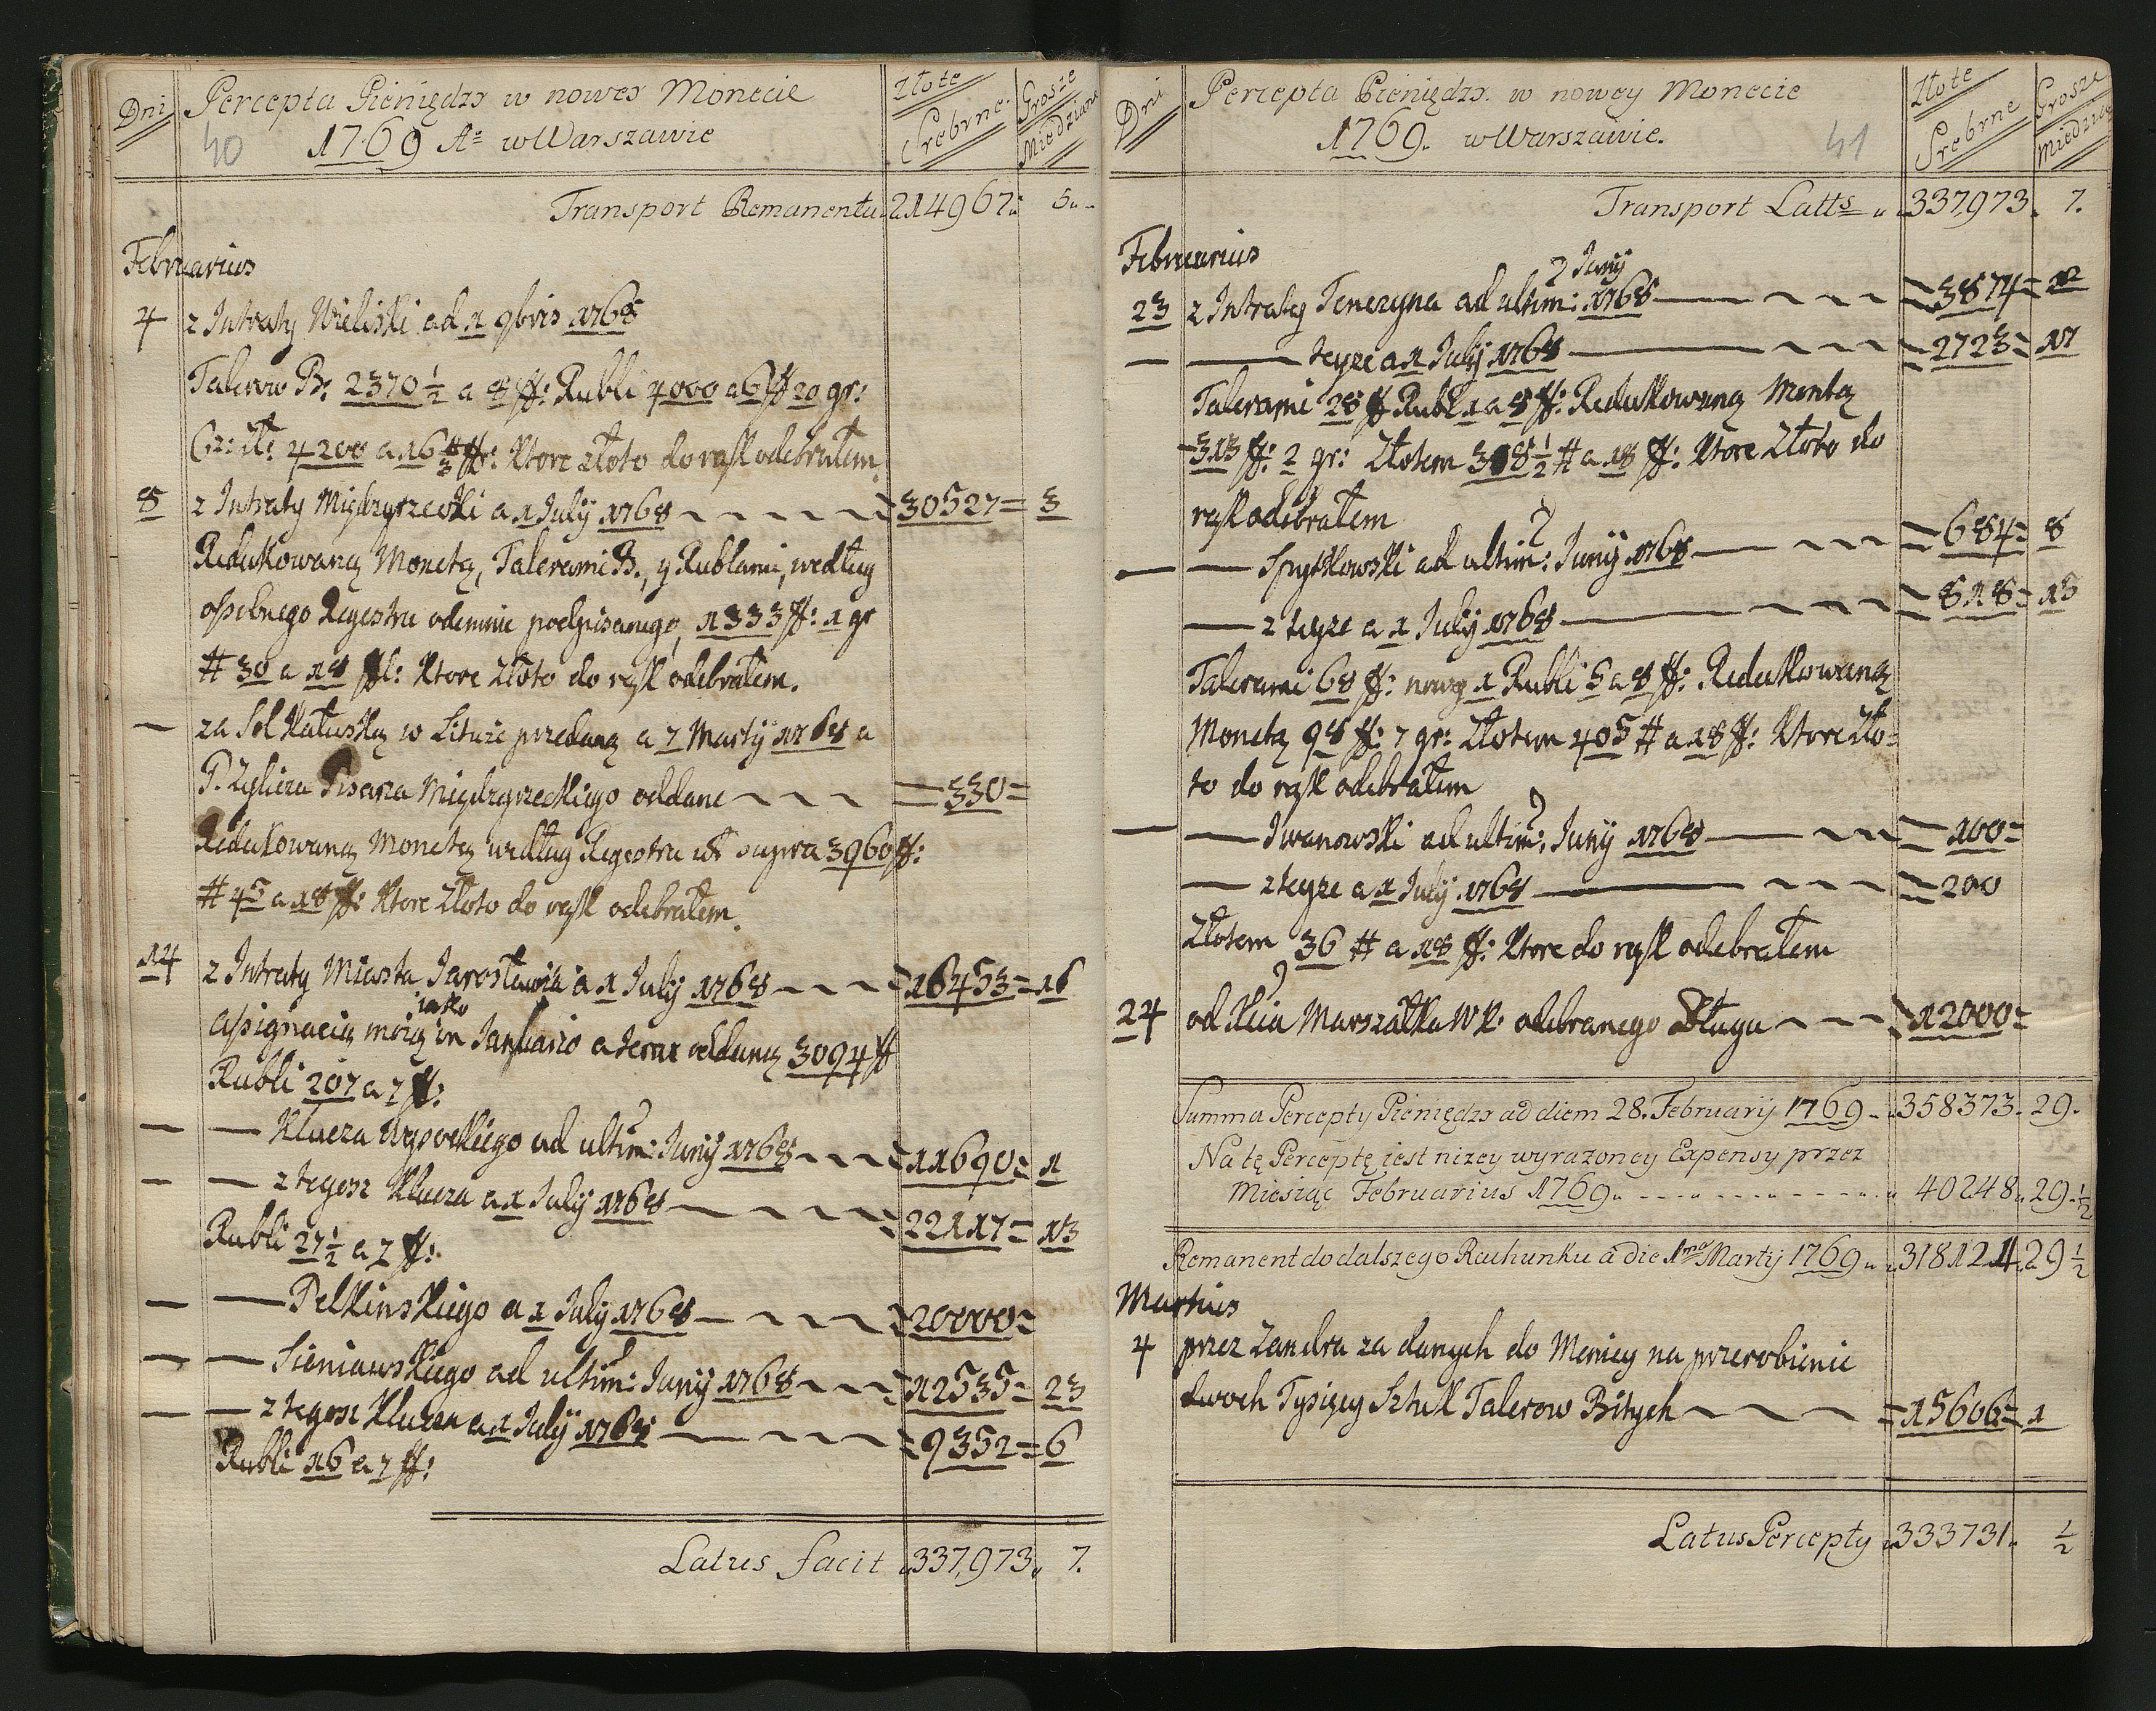 Dni Percepta Pieniędzy w nowey Monecie Złote Srebrne Grosze Miedziane
40 1769 Aº w Warszawie
Transport Remanentu 214967 5
Februarius
4 z Intraty Wieliski ad 1 9bris 1768
Talerow B: 2370 1/2 a 8 ff: Rubli 4000 a 6 ff 20 gr:
Cz: zł: 4200 a 16 ff: Ktore złoto do rąk odebrałem
8 z Intraty Międzyrzecki a 1 July 1768 30527 = 3
Redukowaną Monetą, Talerami B., y Rublami, według
osobnego Regestru odemnie podpisanego, 1333 ff: 1 gr
# 30 a 18 ff: Ktore Złoto do rąk odebrałem.
— za Sol Kałuską w Litwie przedaną a 7 Martij 1768 a
P. Pisarza Międzyrzeckiego oddane = 330 =
Redukowaną Monetą według Regestru ut supra 3960 ff:
# 45 a 18 ff: Ktore Złoto do rąk odebrałem.
14 z Intraty Miasta Jarosławia a 1 July 1768 16453 = 16
jako
assignacią moią in Januario a teraz oddaną 3094 ff
Rubli 207 a 7 ff:
— — Klucza ad ultim: Junij 1768 11690 = 1
— — z tegoż Klucza a 1 July 1768 22117 = 13
Rubli 27 1/2 a 7 ff:
— — Pełkinskiego a 1 July 1768 20000 =
— — Sieniawskiego ad ultim: Junij 1768 12535 = 23
— — z tegoż Klucza a 1 July 1768 9352 = 6
Rubli 16 a 7 ff:
Latus facit 337,973 7.
Dni Percepta Pieniędzy w nowey Monecie Złote Srebrne Grosze Miedziane
1769. w Warszawie. 41
Transport Latts 337,973 7.
Februarius
2 Junij
23 z Intraty Tenczyna ad ultim: 1768 3874 = 12
— — teyże a 1 July 1768 2723 = 17
Talerami 28 ff Rubl 1 a 8 ff: Redukowaną Montą
313 ff: 2 gr: Złotem 308 1/2 # a 18 ff: Ktore Złoto do
rąk odebrałem
— — Spytkowski ad ultim: Junij 1768 684 = 8
— z teyże a 1 July 1768 818 = 13
Talerami 68 ff: nową 1 Rubli 5 a 8 ff: Redukowaną
Monetą 98 ff: 7 gr: Złotem 405 # a 18 ff: Ktore Zło-
to do rąk odebrałem
— — Iwanowski ad ultim: Junij 1768 100 =
— z teyże a 1 July 1768 200
Złotem 36 # a 18 ff: Ktore do rąk odebrałem
24 od Marszałka WK: odebranego Długu 12000 =
Summa Percepty Pieniędzy ad diem 28. Februarij 1769 358373. 29.
Na tę Perceptę jest nizey wyrazoney Expensy przez
Miesiąc Februarius 1769 40248. 29. 1/2
Remanent do dalszego Rachunku a die 1ma Martij 1769 318124 29 1/2
Martius
4 przez Zandra za danych do Mennicy na przerobienie
dwoch Tysięcy Sztuk Talerow Bitych 15606 = 1
Latus Percepty 333731. 1/2